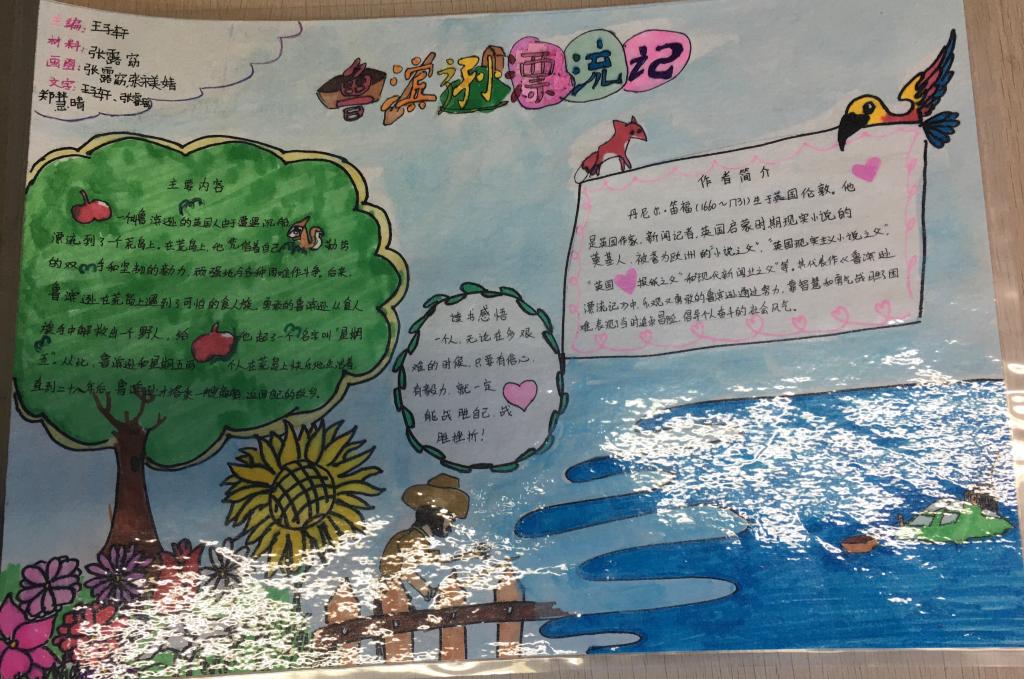 主编：王子轩
材料：张露窈
画图：张露窈，宋美婧
文字：王子轩、张睿
郑慧晴
鲁滨孙漂流记
主要内容
一个叫鲁滨逊的英国人由于遭遇沉船
漂流到了一个荒岛上。在荒岛上，他凭借着自己 勤劳
的双手和坚韧的毅力，顽强地与各种困难作斗争。后来，
鲁滨逊在荒岛上遇到了可怕的食人族，勇敢的鲁滨逊从食人
族手中解救出一个野人，给 他起了一个名字叫"星期
五"。从此，鲁滨逊和星期五两 个人在荒岛上快乐地生活着
直到二十八年后，鲁滨逊才搭乘一艘 返回 的故乡。
读书感悟
一个人，无论在多艰
难的时候，只要有信心，
有毅力，就一定
能战胜自己，战
胜挫折！
作者简介
丹尼尔·笛福（1660～1731）生于英国伦敦。他
是英国作家，新闻记者，英国启蒙时期现实小说的
奠基人，被誉为欧洲的"小说之父"，"英国现实主义小说之父"，
"英国报纸之父"和现代新闻业之父"等。其代表作《鲁滨逊
漂流记》中，乐观又勇敢的鲁滨逊通过努力，靠智慧和勇气战胜了困
难，表现了当时追求冒险，倡导个人奋斗的社会风气。